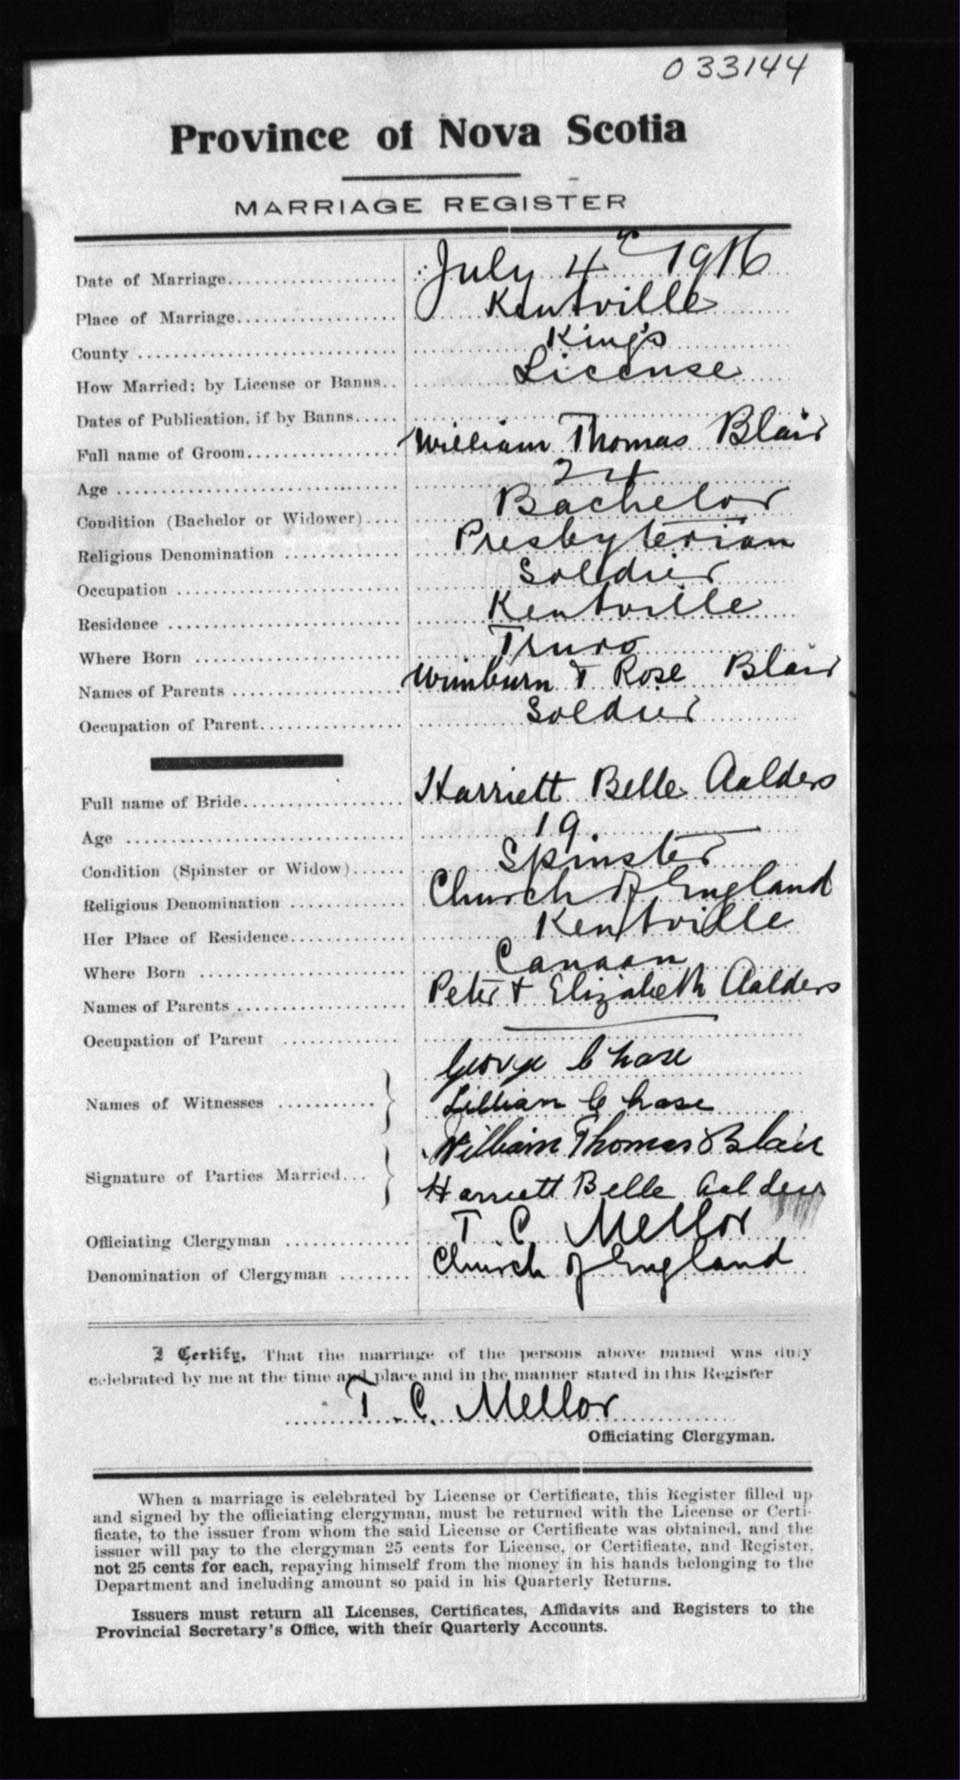 033144
Province of Nova Scotia
MARRIAGE REGISTER
Date of Marriage.................... July 4th 1916
Place of Marriage.................. Kentville
County .............................. King's
How Married; by License or Banns.. License
Dates of Publication, if by Banns.....
Full name of Groom................ William Thomas Blair
Age ................................ 24
Condition (Bachelor or Widower).... Bachelor
Religious Denomination ............ Presbyterian
Occupation ......................... Soldier
Residence .......................... Kentville
Where Born ....................... Truro
Names of Parents .................. Wimburn & Rose Blair
Occupation of Parent............... Soldier
Full name of Bride................. Harriett Belle Aalders
Age ................................ 19
Condition (Spinster or Widow)...... Spinster
Religious Denomination ............ Church of England
Her Place of Residence............. Kentville
Where Born ....................... Canaan
Names of Parents .................. Peter & Elizabeth Aalders
Occupation of Parent ............ —
George Chase
Names of Witnesses ........... } Lillian Chase
William Thomas Blair
Signature of Parties Married... } Harriett Belle Aalders
Officiating Clergyman ............. T. C. Mellor
Denomination of Clergyman ........ Church of England
I Certify, That the marriage of the persons above named was duly
celebrated by me at the time and place and in the manner stated in this Register
T. C. Mellor
Officiating Clergyman.
When a marriage is celebrated by License or Certificate, this Register filled up
and signed by the officiating clergyman, must be returned with the License or Certi-
ficate, to the issuer from whom the said License or Certificate was obtained, and the
issuer will pay to the clergyman 25 cents for License, or Certificate, and Register,
not 25 cents for each, repaying himself from the money in his hands belonging to the
Department and including amount so paid in his Quarterly Returns.
Issuers must return all Licenses, Certificates, Affidavits and Registers to the
Provincial Secretary's Office, with their Quarterly Accounts.